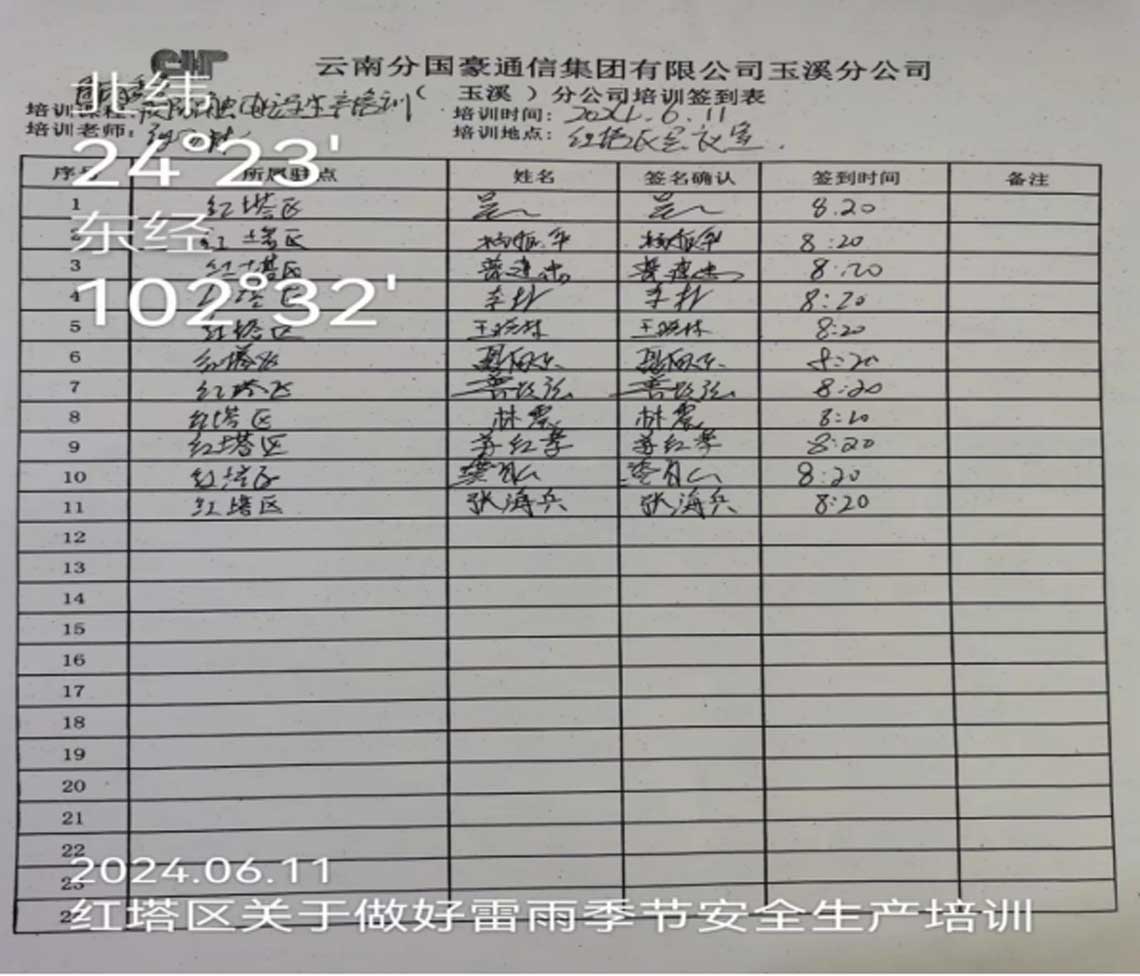 云南分国豪通信集团有限公司玉溪分公司
( 玉溪 ) 分公司培训签到表
培训课程: 安全生产培训 培训时间: 2024.6.11
培训老师: 培训地点: 红塔区会议室.
北纬
24°23'
东经
102°32'
序 所属驻点 姓名 签名确认 签到时间 备注
1 红塔区 8.20
2 红塔区 8:20
3 红塔区 普建忠 普建忠 8:20
4 塔区 李朴 李朴 8:20
5 红塔区 王晓林 王晓林 8:20
6 红塔区 8:20
7 红塔区 8:20
8 红塔区 林震 林震 8:20
9 红塔区 李红学 李红学 8:20
10 红塔区 8:20
11 红塔区 张海兵 张海兵 8:20
12
13
14
15
16
17
18
19
20
21
22
23
2024.06.11
红塔区关于做好雷雨季节安全生产培训